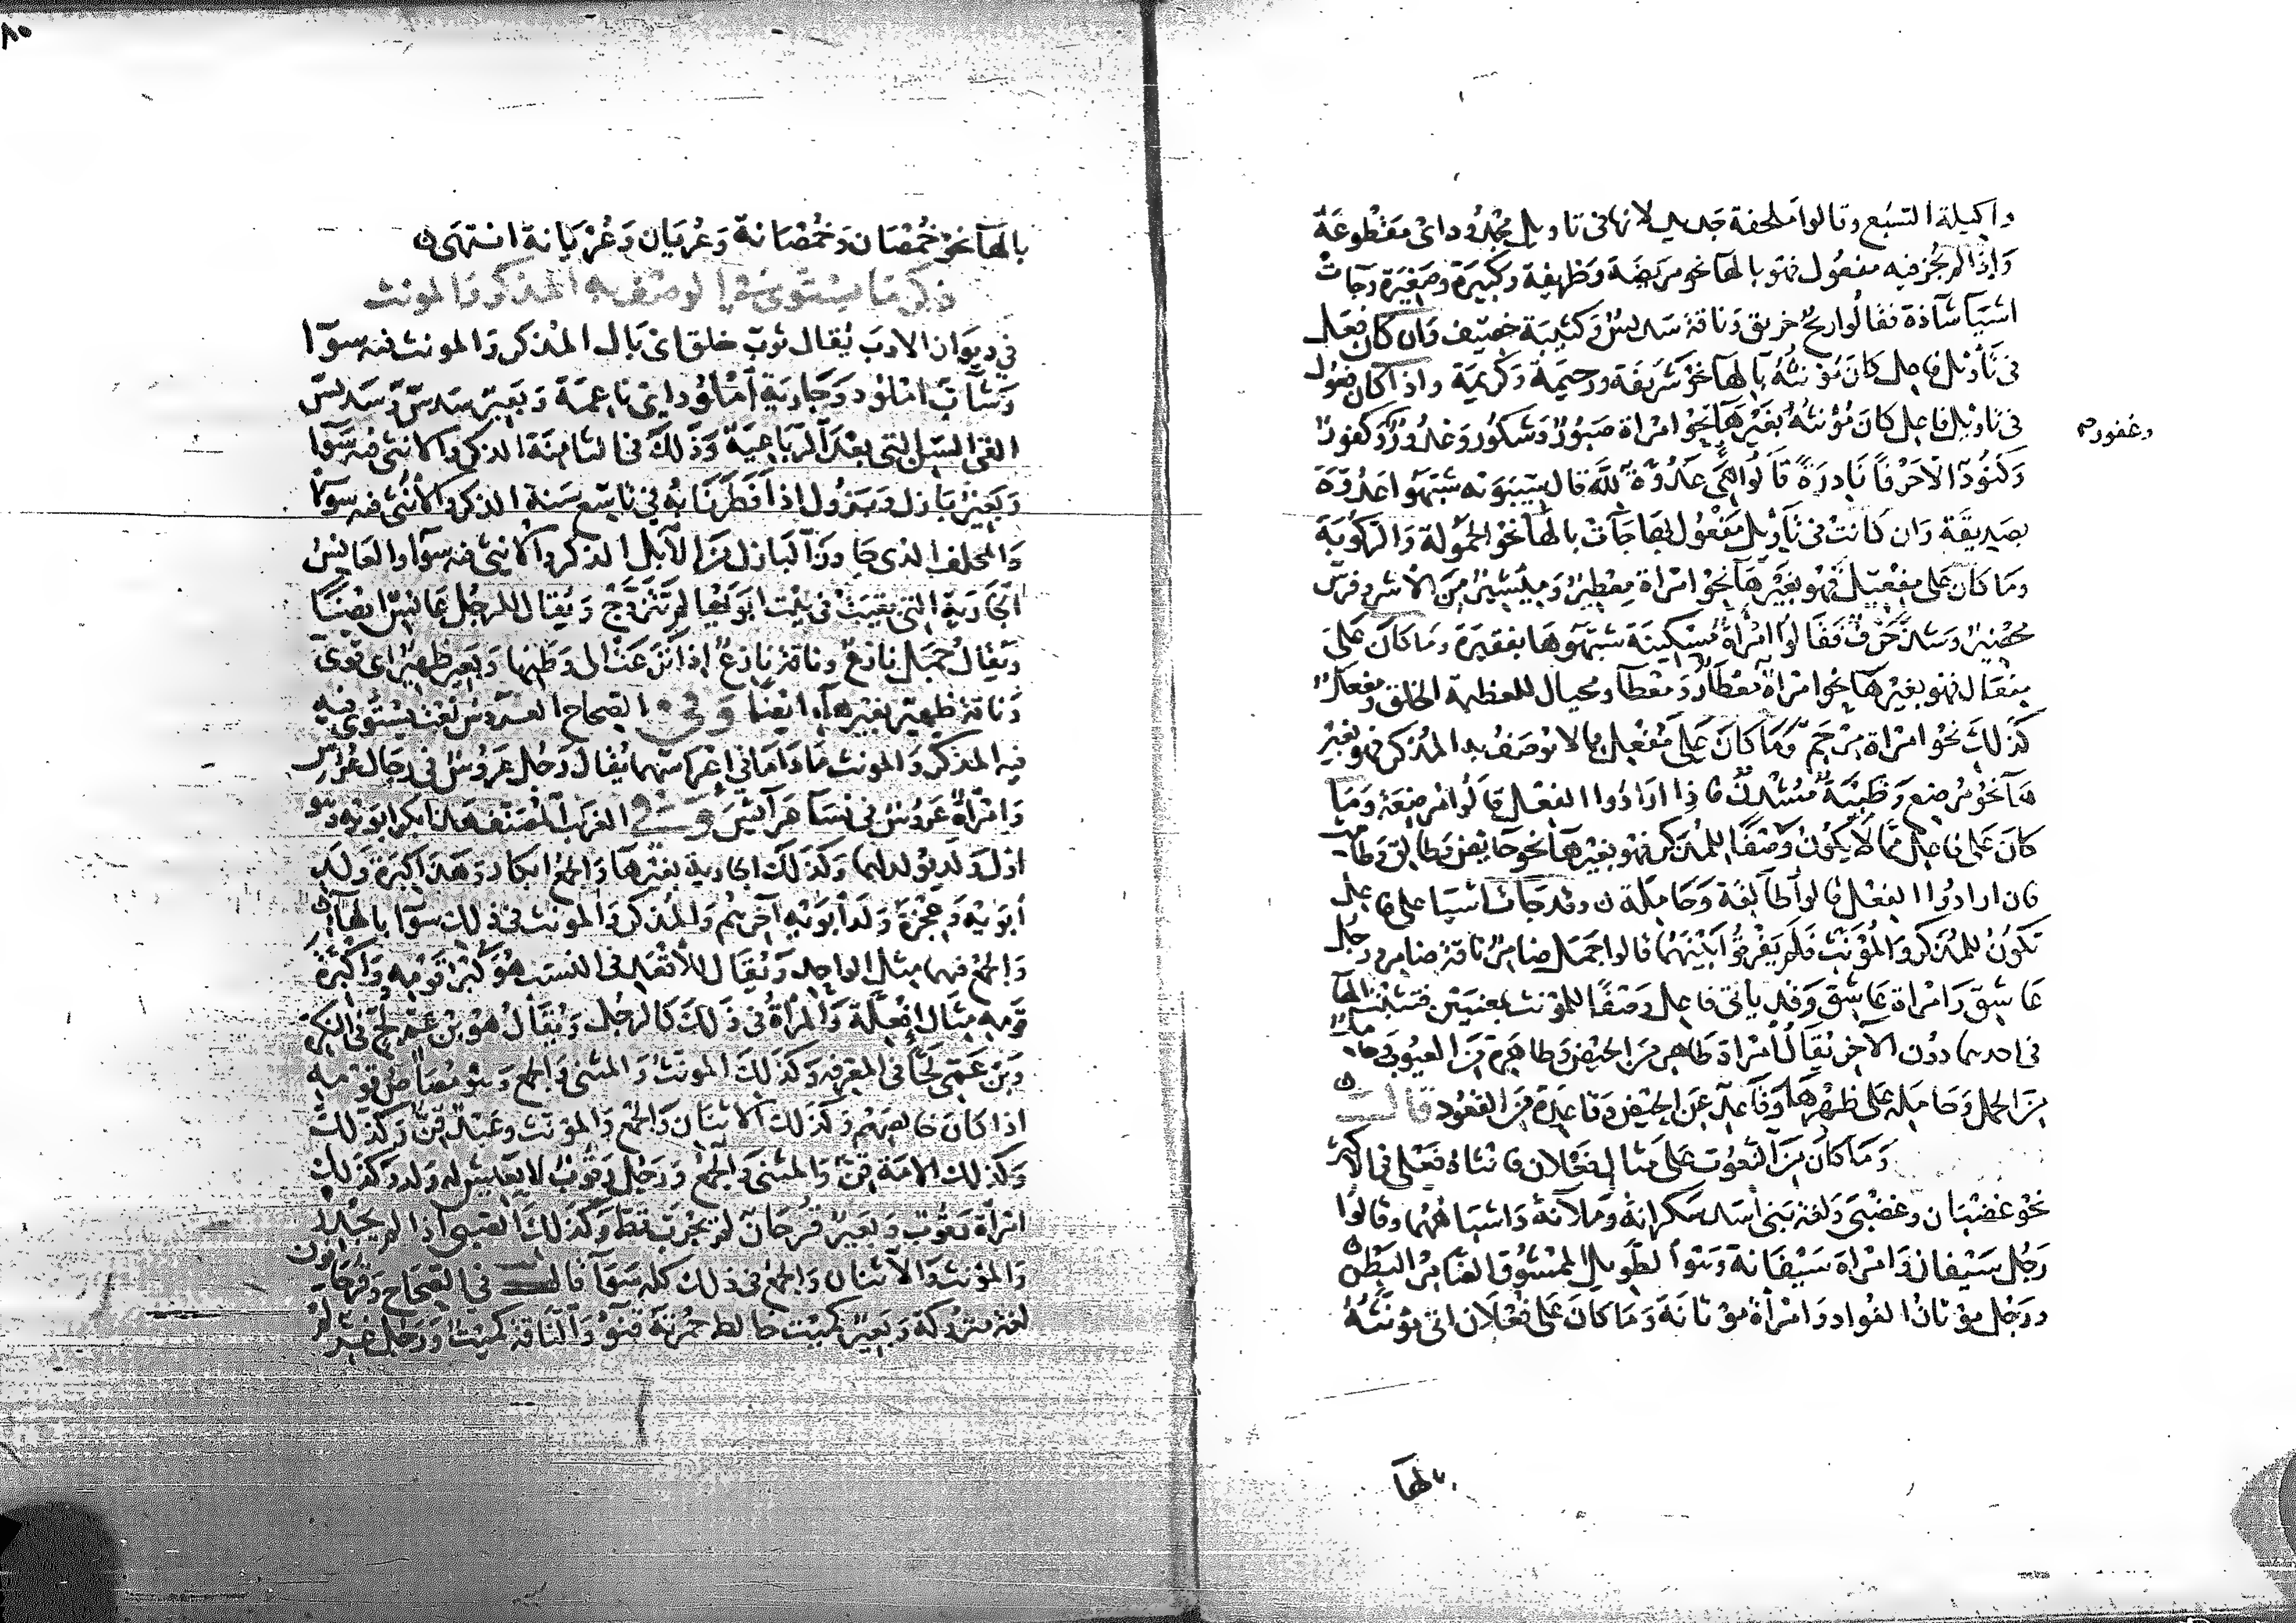 واكيلة السبع وقالوا ملحفة جديد لانها فى تاويل مجدودة اى مقطوعة
وَاِذا لم يجُز فيه مفعُول فهو بالهآ نحو مريضَة وَظريفة وكبيَرة وصَغيَرة وجآت
اشيآ شآذة فقالُوا ريحٌ خريق وَناقة سَديسٌ وَكتيبَة خصيف وَان كان فعيل
فى تَأويل فاعِل كانَ مؤنثهُ بالهآ نحو شَريفة ورحيمَة وَكريمَة واذا كان فعول
فى تاويل فاعِل كان مُؤنثهُ بغير هَآ نحو امراة صبُورٌ وَشكُور وَغدُورٌ وَكفورٌ
وغفور
وَكنُودٌ الا حَرْفاً نَادِرَةً قالُوا هى عَدُوّة للّه قال سِيبَوَيه شبّهَوا عَدُوّة
بصدِيقَة وَان كانت فى تأويل مَفْعُول بها جآت بالهآ نحو الحَمُولة وَالركُوبَة
ومَا كانَ على مِفعيل فهو بغير هآ نحو امراة مِعْطِيرٌ وَمِيشيرٌ مِنَ الاشر وفرسٌ
محضير وَشذّ حَرفٌ فَقالُوا امْرأة مسكِينَة شبّهَوهَا بفقيرَة ومَا كانَ عَلى
مفعَال فهو بغير هَآ نحو امراة معْطارٌ وَمعْطآ ومجبال للعَظيمة الخَلق ومِفْعَلٌ
كذلكَ نحو امراة مِرْجَم وَمَا كانَ عَلى مُفعِل مما لا يوصَفُ به المذكر فهو بغير
هَآ نحو مُرضع وَظبيَة مُشْدِنٌ فاذا ارَادُوا الفعْل قالُوا مُرضِعَة وَمَا
كانَ عَلى فاعِل مما لا يَكُونُ وَصْفًا للمذكر فهو بغير هَآ نحو حَايض وَطالق وطامث
فان ارادُوا الفعْل قالوا طالقة وَحَاملة وقد جَآت اشيا على فاعِل
تكوُنُ للمُذكر وَالمُؤنث فَلم يفرقُوا بَيْنَهُما قالوا جَمَل ضَامرٌ ناقة ضامر ورجل
عَاشِق وَامرَاة عَاشِق وَقد ياتى فاعِل وَصْفًا للمؤنث بمعنيَين فتثبُت الهآ
فى احديهما دوُن الآخر يُقَالُ امْراة طَاهر مِنَ الحَيض وطاهرَة مِنَ العيوُب وحَامل
مِنَ الحمل وَحَامِلة عَلى ظهْرهَا وَقاعِدٌ عَنِ الحَيض وَقاعِدَة مِنَ القعُود قالــــ
وَمَا كانَ مِنَ النعُوت عَلى مثال فَعْلان فانثاهُ فَعْلى فى الاكثر
نحو غضبَان وغضْبَى وَلغة بَنى أسَد سَكرانة وَملآنة وَاشبَاههُما وقالُوا
رَجُل سَيْفان وَامْرَاة سَيْفَانة وَهُوَ الطَّويل الممشُوق الضَّامرُ البَطْن
وَرَجُل موتانُ الفواد وَامْراةٌ مَوتانَة وَمَا كانَ عَلى فُعْلَان اتى مؤنثهُ
بالهآ
٨٠
بالهآ نحو خُمْصَان وَخُمْصَانة وَعُريَان وَعُرْيَانة انتهَى
ذكر مَا يستوى فى الوصف به المذكر وَالمونث
فى ديوان الادبَ يُقال ثوبٌ خلق اى بَال المُذكر وَالمونث فيه سوآ
وَشابٌّ امْلوُد وَجَاريَة اُمْلوُد اى ناعمَة وَبَعِير سَدسٌ وَسَديس
القى السِّن التى بعْدَ الرّبَاعيَة وَذلكَ فى الثامنَة الذكر والانثى فيه سَوآ
وَبَعِيْر بَازل وَبَزوُل اذا فَطَرَ نَابُهُ فى تاسِع سَنة الذكر والانثى فيه سوآ
وَالمخلف الذى جَاوزَ البَازل مِنَ الابل الذكر وَالانثى فيه سَوآ والعَانِسُ
الجَاريَة التى بقيَتْ فى بيْت ابَوَيهَا لم تَتزَوّج وَيُقال للرجُل عَانِسٌ ايضًا
وَيُقالُ جَمَل نازعٌ وناقة نازعٌ اذا نزعَتْ الى وَطنِها وَبَعِير ظهيرٌ اى قَوىّ
وَناقة ظهيرٌ بغير هآ ايضًا وَفى الصّحَاح العَروُسُ نَعْت يَسْتَوى فيه
فيه المذكرُ وَالمونث مَا دَامَا فى اِعْرَاسِهمَا يُقال رَجُل عَروُسٌ فى رجَال عُرُس
وَامْراة عَرُوسٌ فى نسَآ عَرَآئِسَ وَفى الغريب المُصَنَّف هَذا بكر ابَوَيه وَهُو
اوّل وَلد يُولد لهما وَكذلك الجَارية بغير هَآ وَالجمع ابكار وَهَذا كبرَة وَلد
أبَوَيْه وَعِجْزَة وَلد أبَوَيْه آخرهم وَالمُذكر وَالمؤنث فى ذلك سَوآ بالهآ
وَالجمعُ فيهما مِثل الوَاحِد وَيُقال للاقْعَد فى النسَب هُوَ كُبْر قَوْمِه وَاِكْبِرَّة
قَوْمِه مِثال اِفْعِلَّة وَالمَرْأة فى ذلكَ كالرجُل وَيُقَالُ هُوَ بْنُ عَمّ لَحٍّ فى النكرَة
وَبْن عَمّى لَحًّا فى المعرفة وَكذلك المونث وَالمثنى وَالجمع وَهُو مُصَاصُ قَوْمِه
اذا كانَ خالِصَهُم وَكذلكَ الاثنَان وَالجَمْع وَالمؤنث وَعَبْدٌ قِنٌّ وكذلك
وَكذلك الامَة قِنّ وَالمثنى وَالجَمعُ وَرَجُل رَقُوبٌ لا يَعيش له وَلد وَكذلك
امْرأة رَقُوب وَبعِيرٌ قُرْحَان لم يجرَب قط وَكذلكَ الصَّبى اذا لم يُجْدَر
وَالمؤنث وَالاثنَان وَالجمع فى ذلك كله سَوَآ قالــــ فى الصّحَاح وَقُرْحَانون
لغة مَتروُكة وَبَعِير كُمَيت خالط حُمرتَهُ قنوٌّ وَالنّاقة كميت وَرَجُل غِر